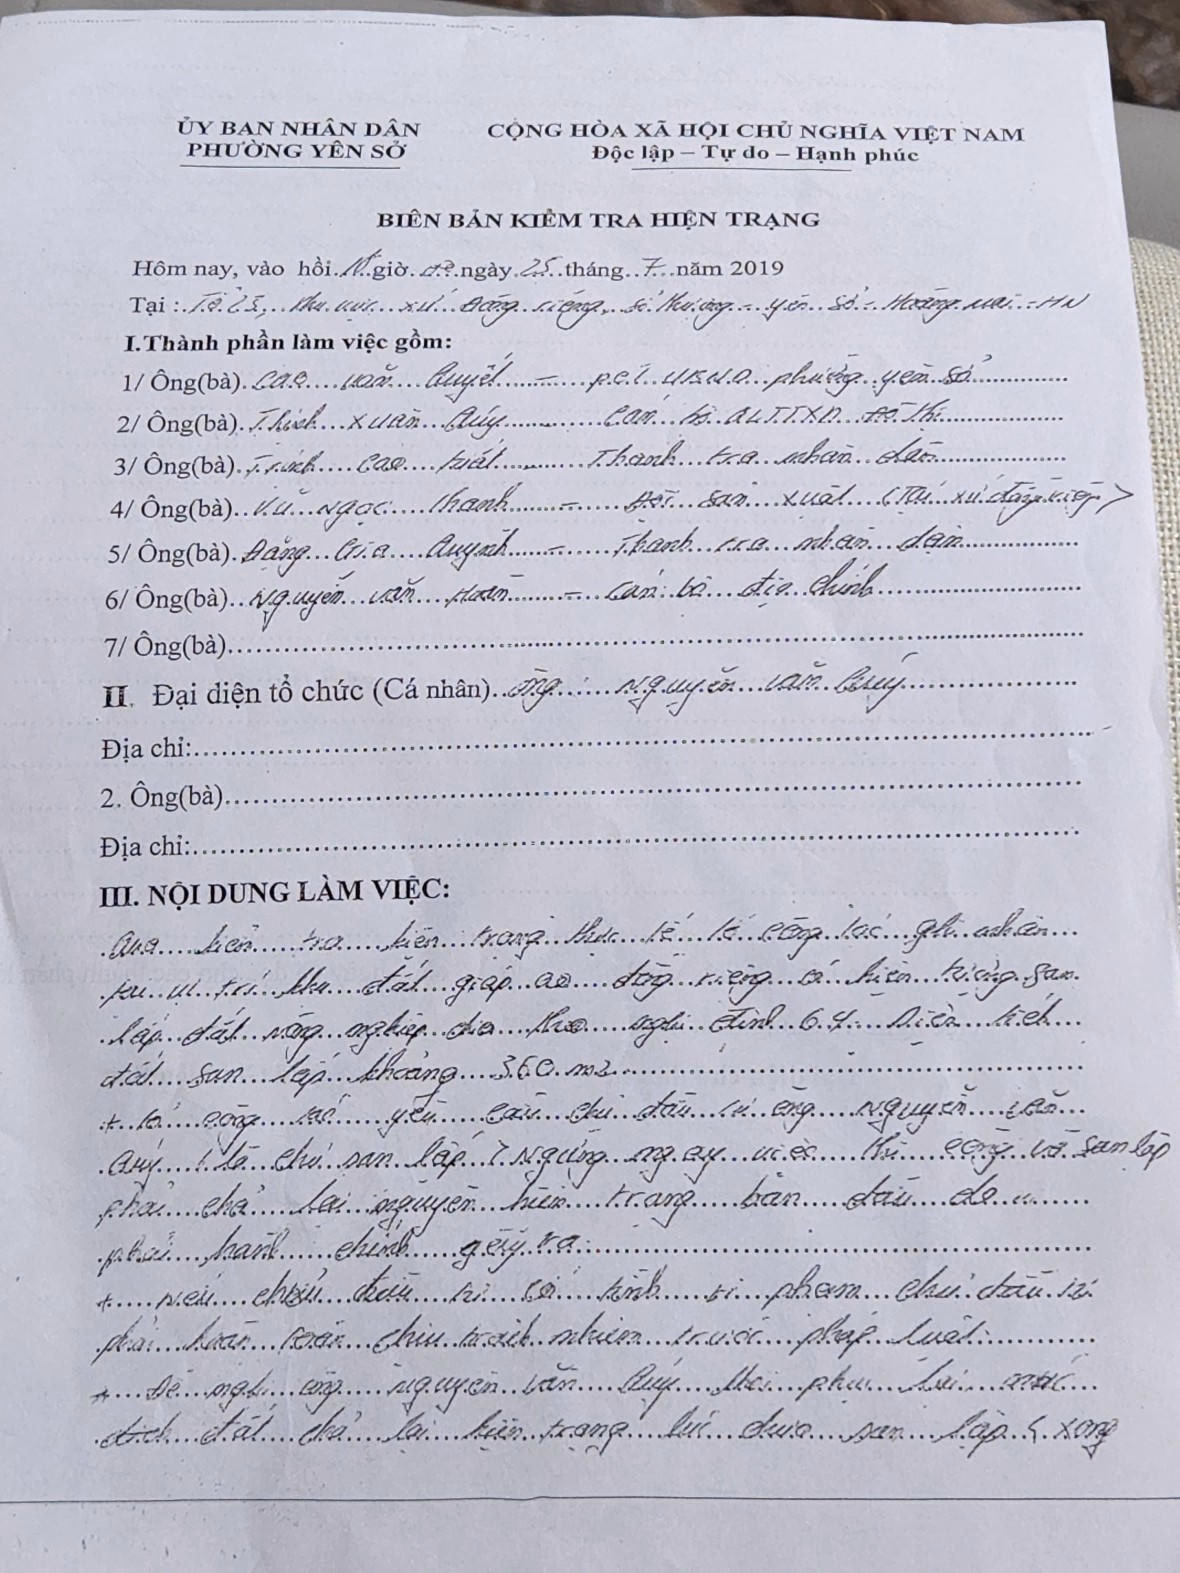 ỦY BAN NHÂN DÂN
PHƯỜNG YÊN SỞ
CỘNG HÒA XÃ HỘI CHỦ NGHĨA VIỆT NAM
Độc lập – Tự do – Hạnh phúc
BIÊN BẢN KIỂM TRA HIỆN TRẠNG
Hôm nay, vào hồi giờ ngày 25 tháng 7 năm 2019
Tại : Tổ 25, khu vực xứ Đồng riêng, sở thượng - yên sở - Hoàng mai - HN
I.Thành phần làm việc gồm:
1/ Ông(bà). Cao văn Quyết - p.c.t UBND phường yên sở
2/ Ông(bà). xuân Qúy Cán bộ QLTTXD Đô thị
3/ Ông(bà). Trịnh cao Thanh tra nhân dân
4/ Ông(bà). Vũ Ngọc thanh - Đội sản xuất (Tại xứ đồng riêng)
5/ Ông(bà). Đặng Quynh - Thanh tra nhân dân
6/ Ông(bà). Nguyễn văn - Cán bộ địa chính
7/ Ông(bà)
II. Đại diện tổ chức (Cá nhân). ông : Nguyễn văn Qúy
Địa chỉ:
2. Ông(bà)
Địa chỉ:
III. NỘI DUNG LÀM VIỆC:
Qua kiểm tra hiện trạng thực tế tổ công tác ghi nhận
tại vị trí khu đất giáp ao đồng riêng có hiện tượng san
lấp đất nông nghiệp theo nghị định 64. Diện tích
đất san lấp khoảng 360 m2
+ tổ công tác yêu cầu chủ đầu tư ông Nguyễn văn
Qúy ( là chủ san lấp ) Ngừng ngay việc thi công và san lấp
phải chả lại nguyên hiện trạng ban đầu do
phải hành chính gây ra.
+ Nếu chủ đầu tư cố tình vi phạm chủ đầu tư
phải hoàn toàn chịu trách nhiệm trước pháp luật.
+ Đề nghị ông Nguyễn văn Qúy khôi phục lại mục
đích đất chả lại hiện trạng lúc chưa san lấp xong